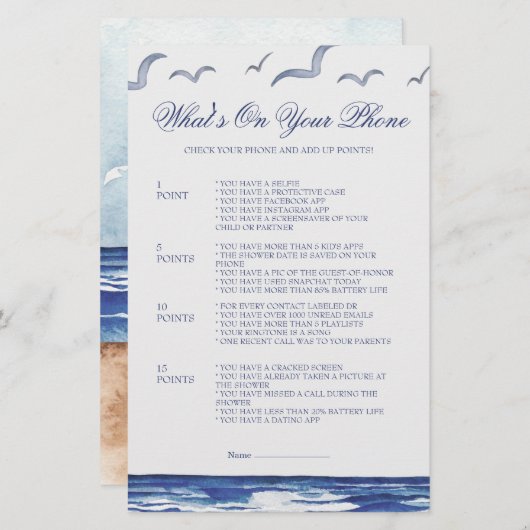 What's On Your Phone
CHECK YOUR PHONE AND ADD UP POINTS!
1
POINT
* YOU HAVE A SELFIE
* YOU HAVE A PROTECTIVE CASE
* YOU HAVE FACEBOOK APP
* YOU HAVE INSTAGRAM APP
* YOU HAVE A SCREENSAVER OF YOUR
CHILD OR PARTNER
5
POINTS
* YOU HAVE MORE THAN 5 KID'S APPS
* THE SHOWER DATE IS SAVED ON YOUR
PHONE
* YOU HAVE A PIC OF THE GUEST-OF-HONOR
* YOU HAVE USED SNAPCHAT TODAY
* YOU HAVE MORE THAN 85% BATTERY LIFE
10
POINTS
* FOR EVERY CONTACT LABELED DR
* YOU HAVE OVER 1000 UNREAD EMAILS
* YOU HAVE MORE THAN 5 PLAYLISTS
* YOUR RINGTONE IS A SONG
* ONE RECENT CALL WAS TO YOUR PARENTS
15
POINTS
* YOU HAVE A CRACKED SCREEN
* YOU HAVE ALREADY TAKEN A PICTURE AT
THE SHOWER
* YOU HAVE MISSED A CALL DURING THE
SHOWER
* YOU HAVE LESS THAN 20% BATTERY LIFE
* YOU HAVE A DATING APP
Name